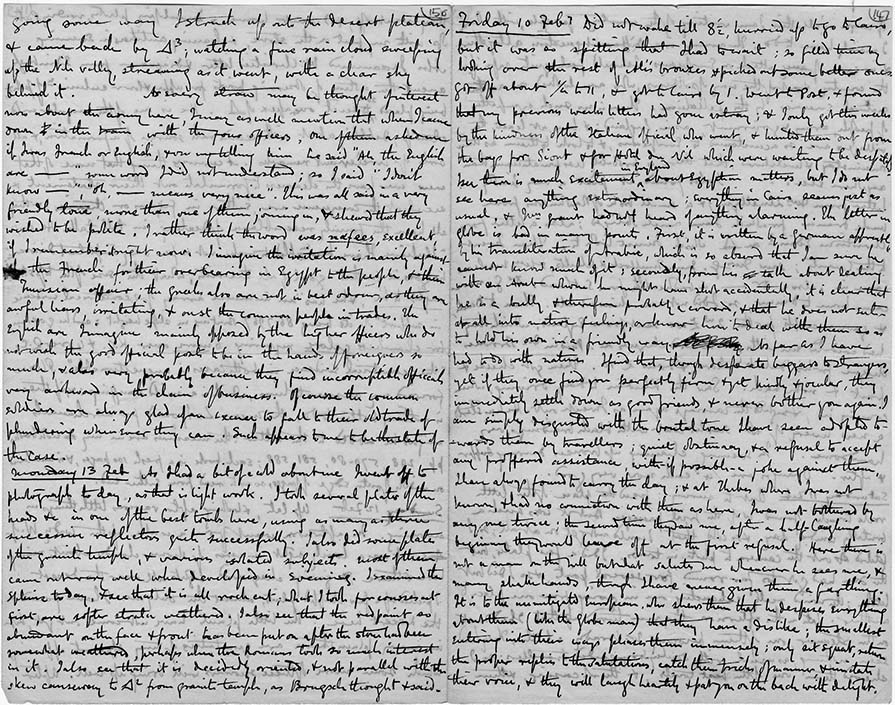 15c
going some way I struck up out the desert plateau
& came back by Δ3; watching a fine rain cloud sweeping
up the Nile valley, streaming as it went, with a clear sky
behind it. As every straw may be thought of interest
now about the army here, I may as well mention that when I came
down in the train with the four officers, one of them asked me
if I was French or English, & on my telling him he said "Ah the English
are —" some word I did not understand; so I said "I don't
know —" "oh — means very nice". This was all said in a very
friendly tone, more than one of them joining in, & shewed that they
wished to be polite. I rather think the word was nafees, excellent,
if I remember right now. I imagine the irritation is mainly against
the French for their overbearing in Egypt to the people, & their
Tunisian affair; the Greeks also are not in best odour, as they are
awful liars, irritating, & oust the common people in trades. The
English are I imagine mainly opposed by the higher officers who do
not wish the good official posts to be in the hands of foreigners so
much, & also very probably because they find incorruptible officials
very awkward in the chain of business. Of course the common
soldiers are always glad of an excuse to fall to their old trade of
plundering whenever they can. Such appears to me to be the state of
the case.
Monday 13 Feb As I had a bit of cold about me I went off to
photograph to day, as that is light work. I took several plates of the
heads &c in one of the best tombs here, using as many as three
successive reflectors quite successfully. I also did some plates
of the granite temple, & various isolated subjects, most of them
came out very well when developed in evening. I examined the
Sphinx to day, & see that it is all rock cut; what I took for courses at
first, are softer strata weathered. I also see that the red paint so
abundant on the face & front has been put on after the stone had been
somewhat weathered; perhaps when the Romans took so much interest
in it. I also see that it is decidedly oriented, & not parallel with the
skew causeway to Δ2 from granite temple, as Brugsch thought & said.
14
Friday 10 Feb? Did not wake till 8½, hurried up to go to Cairo,
but it was so spitting that I had to wait; so filled time by
looking over the rest of Ali's bronzes & picked out some better ones
got off about ¼ to 11, & got to Cairo by 1. Went to Post, & found
that my previous weeks letters had gone astray; & I only got this weeks
by the kindness of the Italian official who went, & hunted them out from
the bags for Siout & for Hotel du Nil which were waiting to be despd
I see there is much excitement in England about Egyptian matters, but I do not
see here anything extraordinary; everything in Cairo seems just as
usual, & Dr Grant had not heard of anything alarming. The letter in
globe is bad in many points. First, it is written by a German apparently
by his transliteration of Arabic, which is so absurd that I am sure he
cannot know much of it; secondly, from his talk about dealing
with an Arab whom he might have shot accidentally, it is clear that
he is a bully & therefore probably a coward, & that he does not enter
at all into native feelings, or know how to deal with them so as
to hold his own in a friendly way. As far as I have
had to do with natives I find that, though desperate beggars to strangers,
yet if they once find you perfectly firm & yet kindly & jocular, they
immediately settle down as good friends, & never bother you again. I
am simply disgusted with the brutal tone I have seen adopted to
wards them by travellers; quiet obstinacy, & a refusal to accept
any proffered assistance, with if possible a joke against them,
I have always found to carry the day; & at Thebes where I was not
known, & had no connection with them as here, I was not bothered by
anyone twice; the second time they saw me, after a half laughing
beginning they would leave off at the first refusal. Here there is
not a man on the hill but what salutes me whenever he sees me, &
many shake hands, though I have never given them a farthing.
It is to the unmitigated European who shews them that he despises everything
about them (like the globe man) that they have a dislike; the smallest
entering into their ways pleases them immensely; only sit squat, return
the proper replies to the salutations, catch their tricks of manner & imitate
their voice, & they will laugh heartily & pat you on the back with delight.